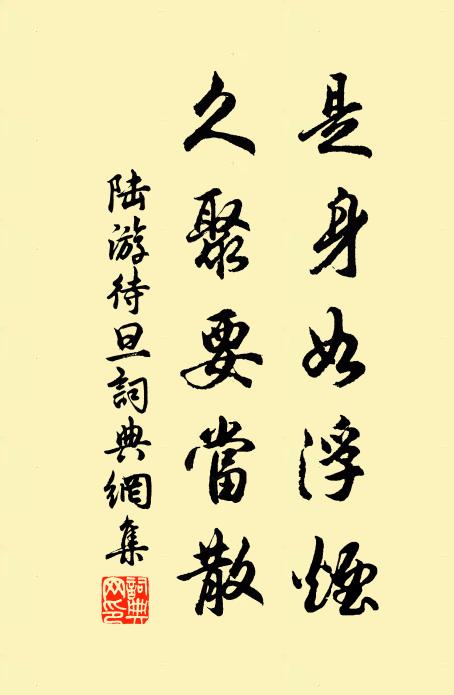 是身如浮煙
久聚要當散
陸游待旦詞典網集
詞典
网印